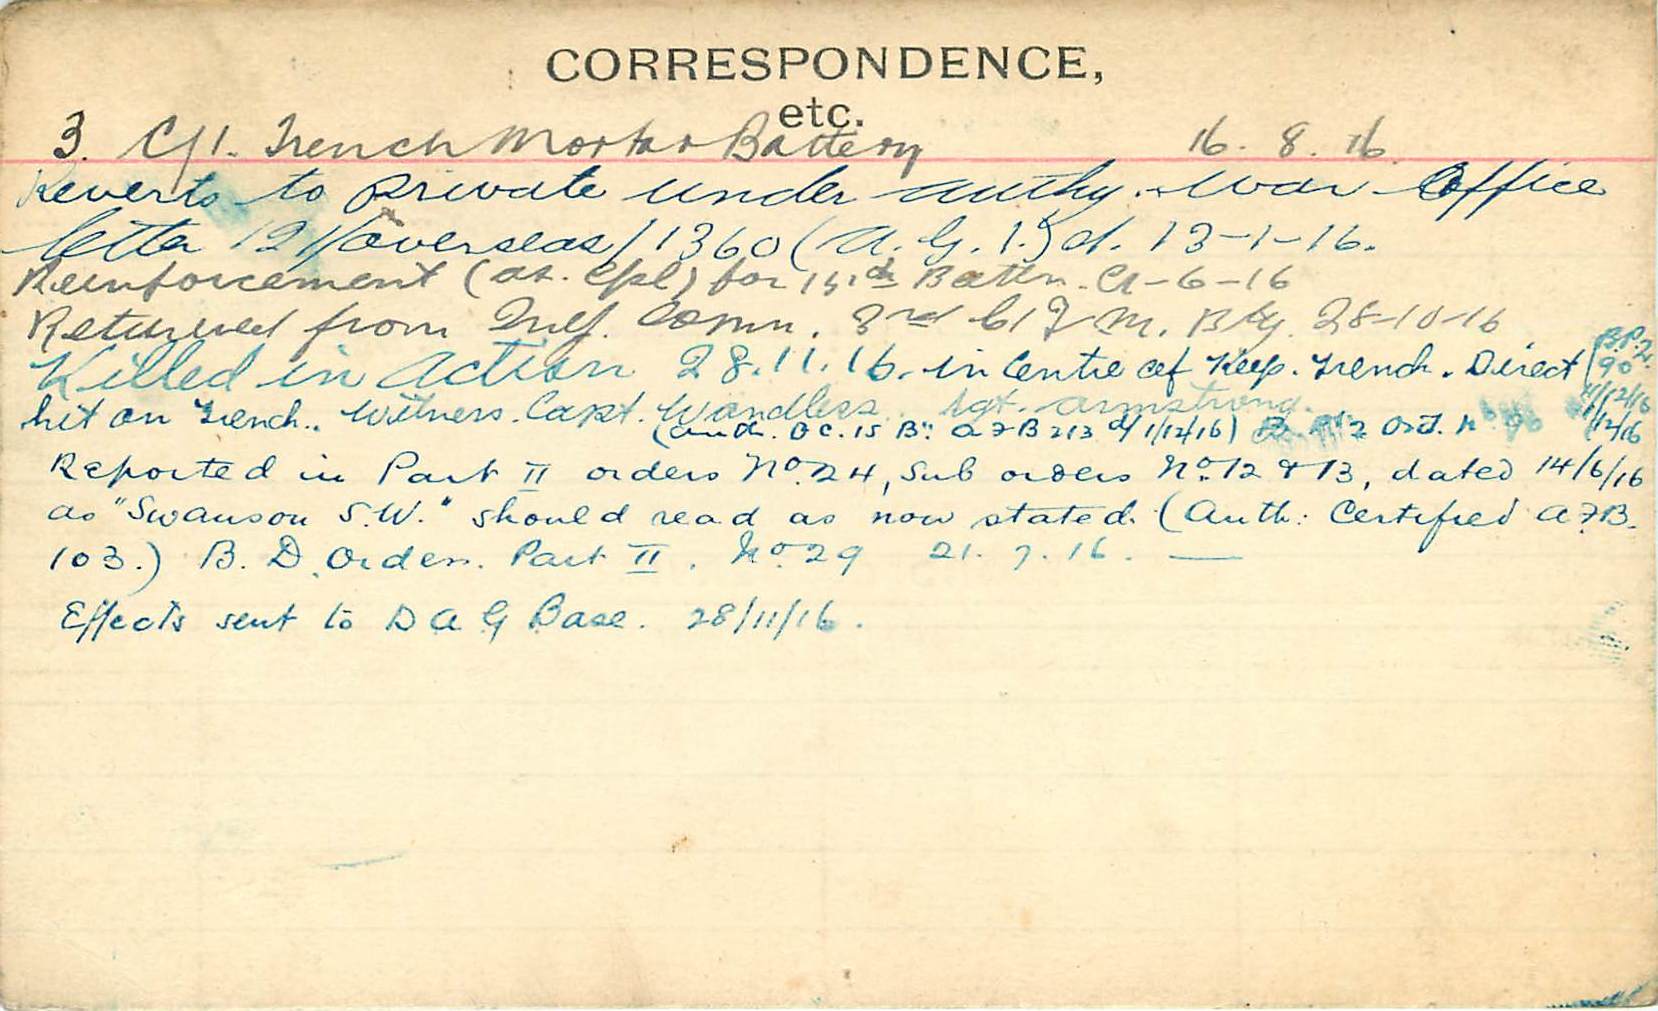 CORRESPONDENCE,
etc.
3. C/1. Trench Mortar Battery 16. 8. 16
Reverts to private under authy. War Office
letter 121/overseas/1360 (A. G. 1.) d. 13-1-16.
Reinforcement (as. Cpl) for 15th Battn. -6-16
Returned from Comn. 3rd C1 T M. Bty. 28-10-16
Killed in Action 28.11.16. in Centre of Keep. Trench. Direct
hit on Trench.. Witness. Capt. Wandless. Sgt. Armstrong.
B.P.2.
90
4/12/16
1/12/16
(Auth. O C. 15 Bn: A F B 213 d/1/12/16) 2 Ord. N
Reported in Part II orders No. 24, Sub orders No. 12 & 13, dated 14/6/16
as "Swanson S.W." should read as now stated. (Auth: Certified A.F.B.
103.) B. D. Orders. Part II. No. 29 21. 7. 16. —
Effects sent to D A G Base. 28/11/16.